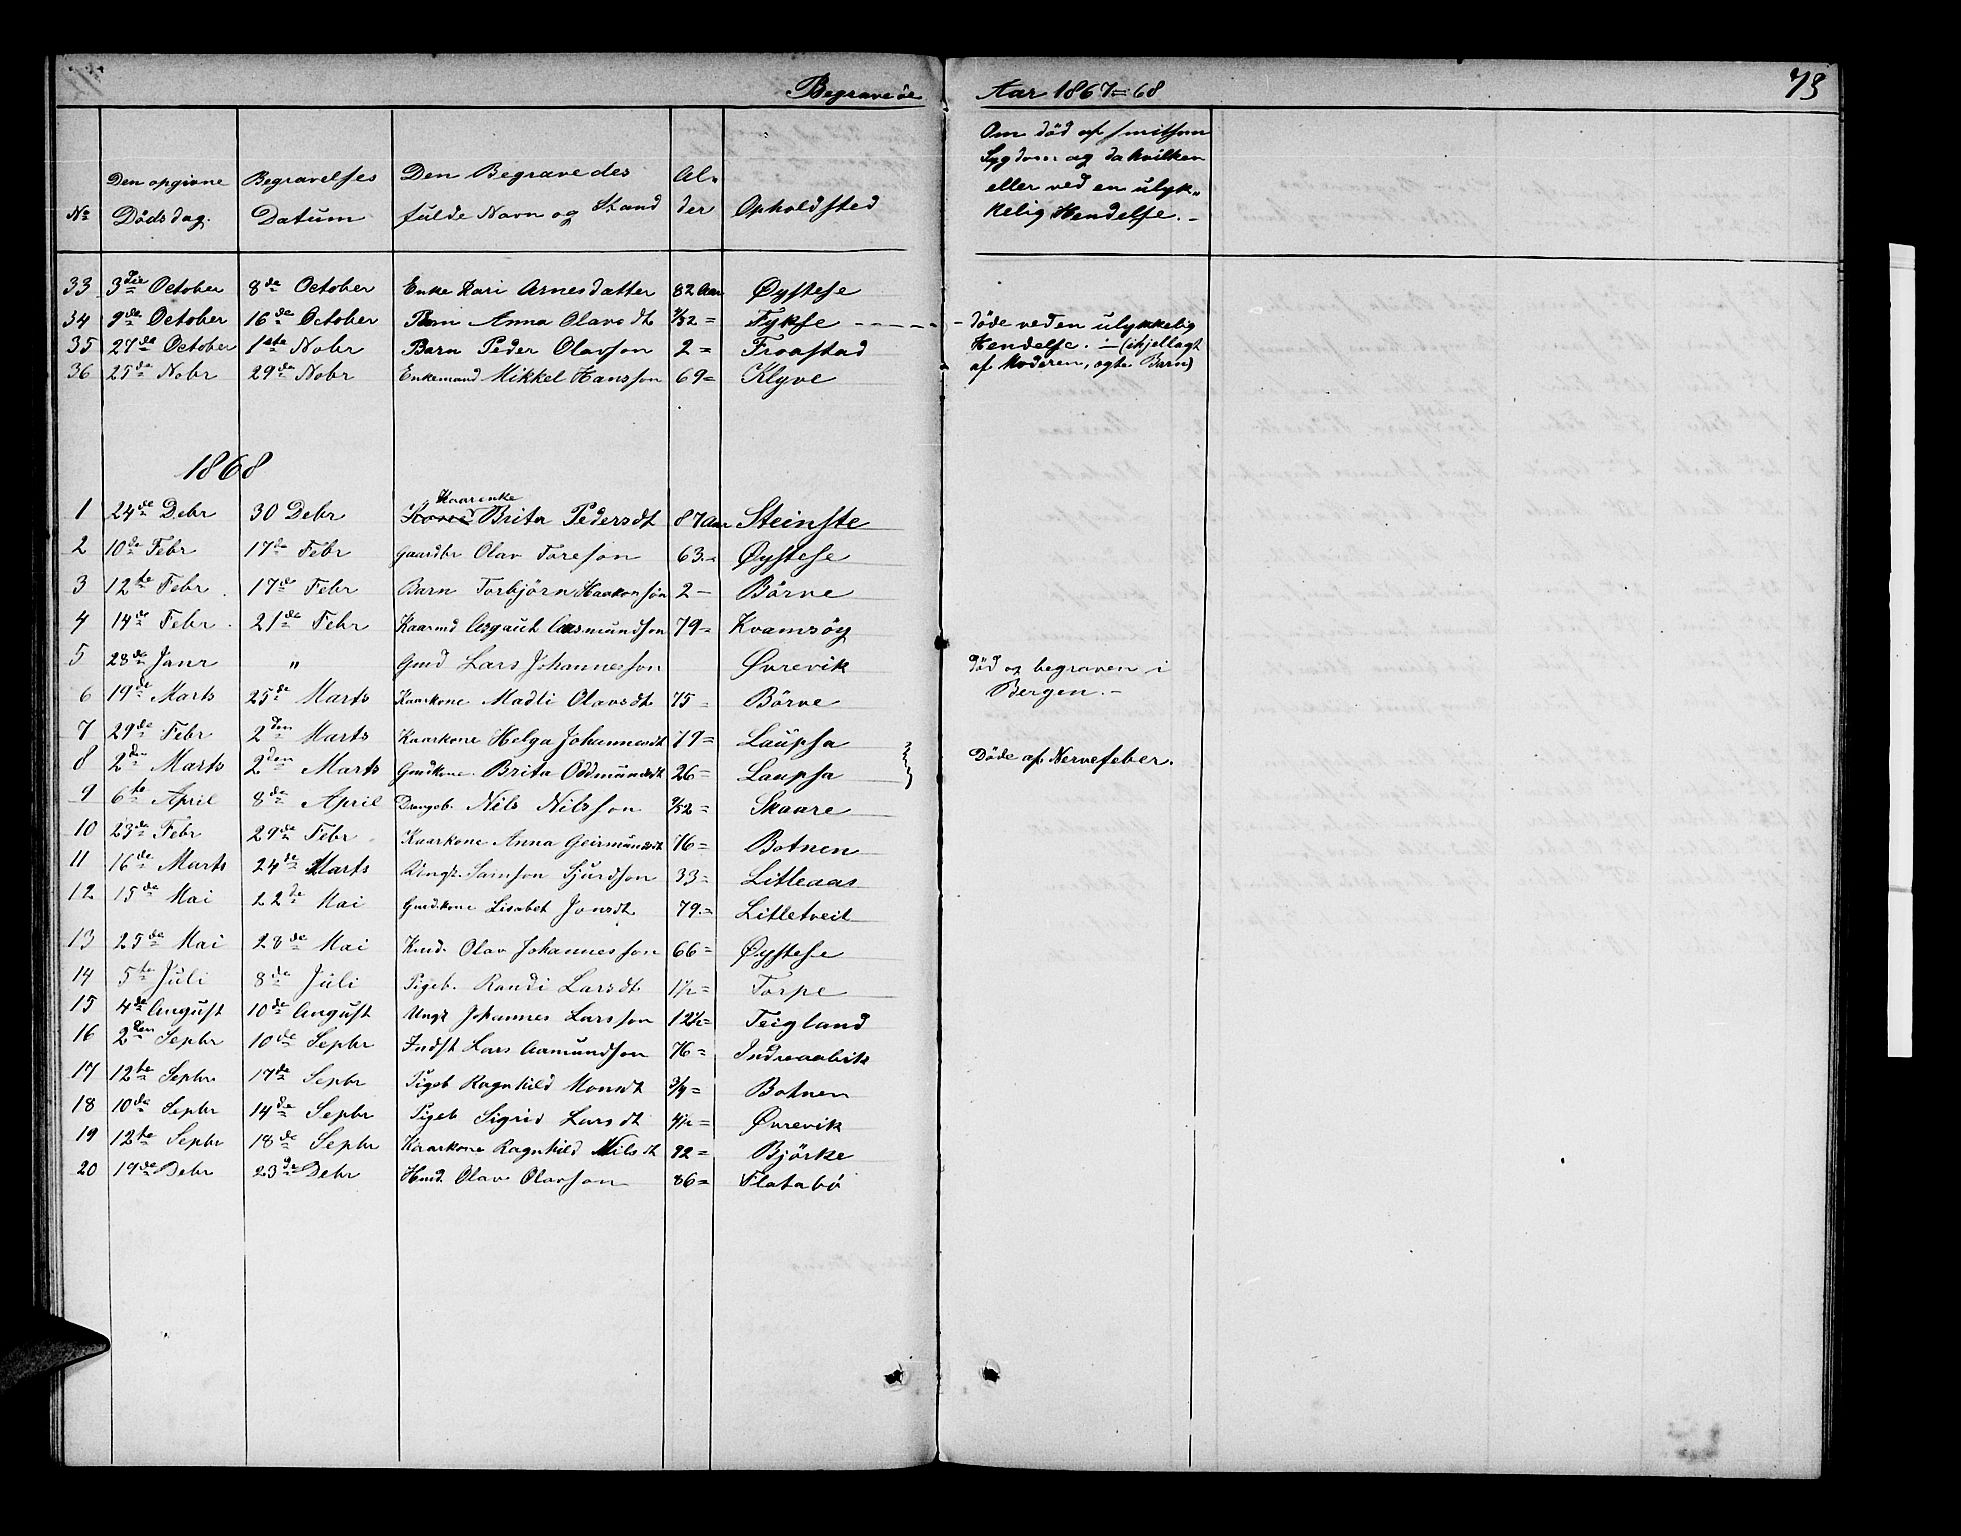 Begravede Aar 1867=68 73
No Den opgivne Dödsdag. Begravelses Datum Den Begravedes fulde Navn og Stand Al- der Opholdsted Om död af smitsom Sygdom og da hvilken eller ved en ulyk- kelig Hendelse. -
33 3die October 8de October Enke Kari Arnesdatter 82 Aar Øystese
34 9de October 16de October Barn Anna Olavsdt 9/52 = Fykse - - - - - döde ved en ulykkelig
35 27de October 1ste Nobr Barn Peder Olavson 2 = Froastad Hendelse. - (ihjellagt
36 25de Nobr 29de Nobr Enkemand Mikkel Hansson 69 = Klyve af Moderen, egte Barn)
1868
Kaarenke
1 24de Debr 30 Debr Brita Pedersdt 87 Aar Steinste
2 10de Febr 17de Febr Gaardbr Olav Toreson 63 = Øystese
3 12te Febr. 17de Febr Barn Torbjörn Haakonson 2 - Börve
4 14de Febr. 21de Febr Kaarmd Asgaut Aasmundson 79 = Kvamsöy
5 28de Janr " Gmd Lars Johannesson Øvrevik död og begraven i
6 19de Marts 25de Marts Kaarkone Madli Olavsdt 75 = Börve Bergen. -
7 29de Febr 2den Marts Kaarkone Helga Johannesdt 79 = Laupsa
8 2den Marts 2den Marts Gmdkone. Brita Oddmundsdt 26 = Laupsa Döde af Nervefeber.
9 6te April 8de April Drengeb. Nils Nilsson 9/52 = Skaare
10 23de Febr 29de Febr Kaarkone Anna Geirmundsdt 76 = Botnen
11 16de Marts 24de Marts Ungk. Samson Sjurdson 33 = Litleaas
12 15de Mai 22de Mai Gmdkone Lisabet Jonsdt 79 = Litletveit
13 25de Mai 28de Mai Kmd. Olav Johannesson 66 = Øystese
14 5te Juli 8de Juli Pigeb. Randi Larsdt 1½ = Torpe
15 4de August 10de August Ungk Johannes Larsson 12½ = Teigland
16 2den Sepbr 10de Sepbr Indst Lars Aamundson 76 = Indreaalvik
17 12te Sepbr. 17de Sepbr Pigeb Ragnhild Monsdt 3/4 = Botnen
18 10de Sepbr 14de Sepbr Pigeb Sigrid Larsdt 4½ = Øvrevik
19 12te Sepbr 18de Sepbr Kaarkone Ragnhild Nilsdt 92 = Björke
20 19de Debr 23de Debr Kmd. Olav Olavson 86 = Flatabö